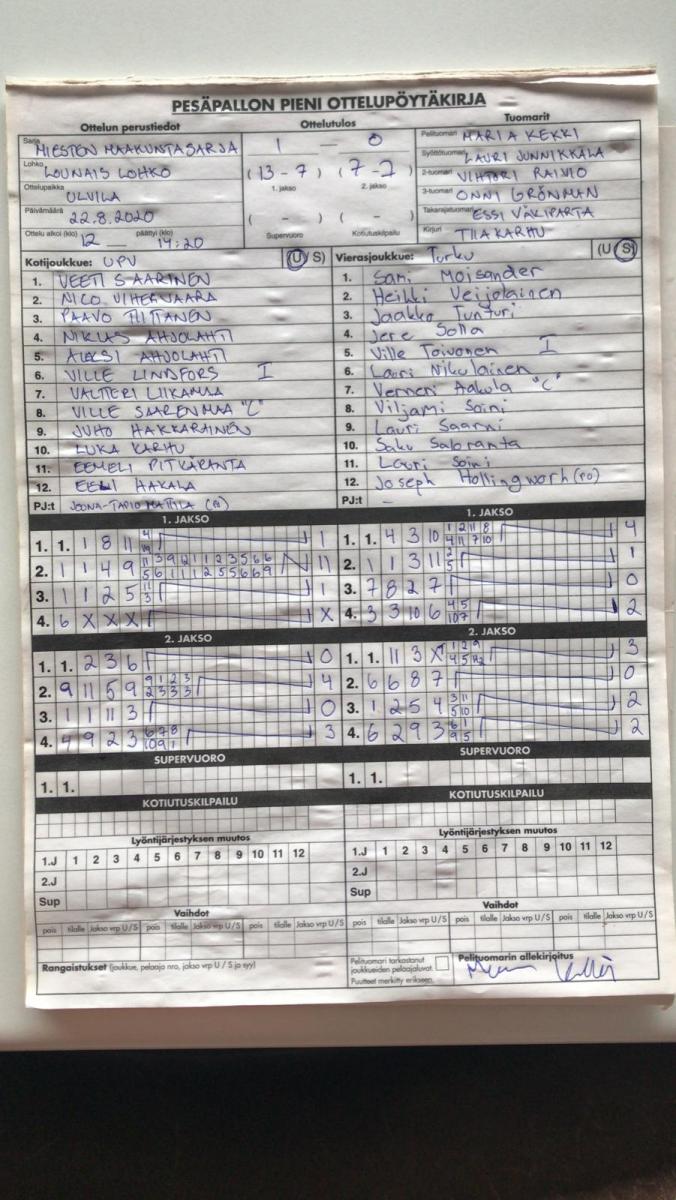 PESÄPALLON PIENI OTTELUPÖYTÄKIRJA
Ottelun perustiedot
Ottelutulos
Tuomarit
Sarja MIESTEN MAAKUNTASARJA
1 — 0
Pelituomari MARIA KEKKI
Lohko LOUNAIS LOHKO
(13 - 7) (7 - 7)
Syöttötuomari LAURI JUNNIKKALA
1. jakso 2. jakso
2-tuomari VIHTORI RAINIO
Ottelupaikka ULVILA
3-tuomari ONNI GRÖNMAN
Päivämäärä 22.8.2020
( - ) ( - )
Takarajatuomari ESSI VÄKIPARTA
Ottelu alkoi (klo) 12 päättyi (klo) 14:20
Supervuoro Kotiutuskilpailu
Kirjuri TIIA KARHU
Kotijoukkue: UPV (U S)
Vierasjoukkue: Turku (U S)
1. VEETI SAARINEN
2. NICO VIHERVAARA
3. PAAVO TIITTANEN
4. NIKLAS AHJOLAHTI
5. ALEKSI AHJOLAHTI
6. VILLE LINDFORS I
7. VALTTERI LIIKAMAA
8. VILLE SAARENMAA "C"
9. JUHO HAKKARAINEN
10. LUKA KARHU
11. EEMELI PITKÄRANTA
12. EELI HAKALA
PJ:t JOONA-TAPIO MATTILA
1. Sami Moisander
2. Heikki Veijolainen
3. Jaakko Tunturi
4. Jere Solla
5. Ville Toivonen I
6. Lauri Nikulainen
7. Verneri Aakula "C"
8. Viljami Soini
9. Lauri Saarni
10. Saku Saloranta
11. Lauri Soini
12. Joseph Hollingworh (ro)
PJ:t –
1. JAKSO
1. 1. 1 8 11 1
2. 1 1 4 9 11
3. 1 1 2 5 1
4. 6 X X X X
1. JAKSO
1. 1. 4 3 10 4
2. 1 1 3 11 1
3. 7 8 2 7 0
4. 3 3 10 6 2
2. JAKSO
1. 1. 2 3 6 0
2. 9 11 5 9 4
3. 1 1 11 3 0
4. 4 9 2 3 3
2. JAKSO
1. 1. 11 3 X 3
2. 6 6 8 7 0
3. 1 2 5 4 2
4. 6 2 9 3 2
SUPERVUORO
1. 1.
SUPERVUORO
1. 1.
KOTIUTUSKILPAILU
KOTIUTUSKILPAILU
Lyöntijärjestyksen muutos
1.J 1 2 3 4 5 6 7 8 9 10 11 12
2.J
Sup
Lyöntijärjestyksen muutos
1.J 1 2 3 4 5 6 7 8 9 10 11 12
2.J
Sup
Vaihdot
pois tilalle Jakso vrp U / S pois tilalle Jakso vrp U / S pois tilalle Jakso vrp U / S
Vaihdot
pois tilalle Jakso vrp U / S pois tilalle Jakso vrp U / S pois tilalle Jakso vrp U / S
Rangaistukset (joukkue, pelaaja nro, jakso vrp U / S ja syy)
Pelituomari tarkastanut
joukkueiden pelaajaluvat.
Puutteet merkitty erikseen.
Pelituomarin allekirjoitus